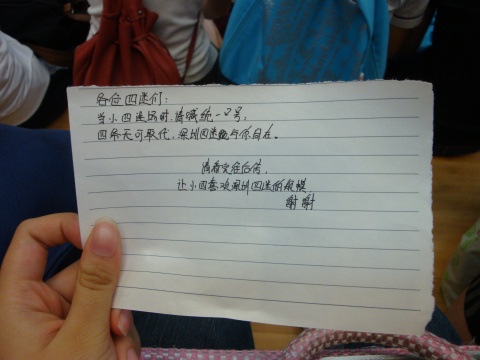 各位四迷们：
当小四进场时，请喊统一口号：
四爷无可取代，深圳四迷与你同在。
请看完往后传，
让小四喜欢深圳四迷的规模
谢谢